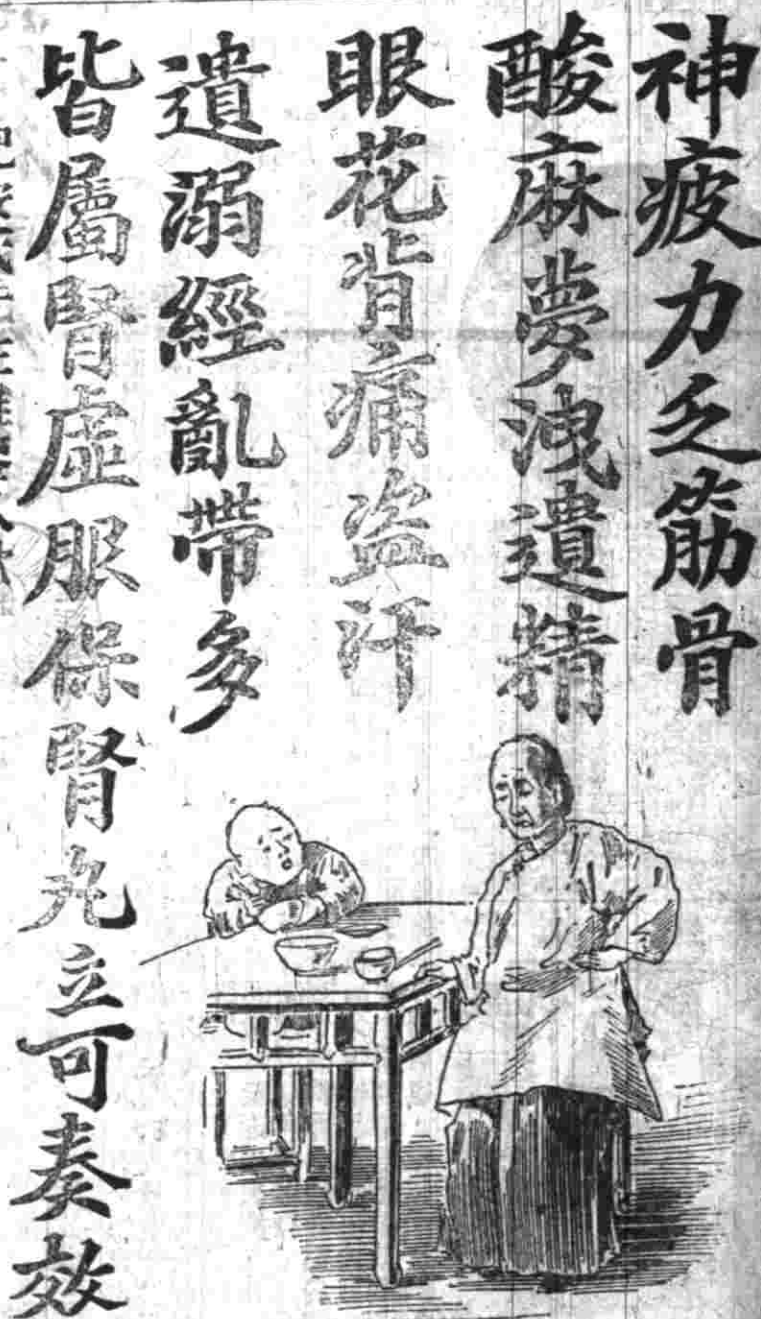 神疲力乏筋骨
酸麻夢洩遺精
眼花背痛盜汗
遺溺經亂帶多
皆屬腎虛服保腎丸立可奏效